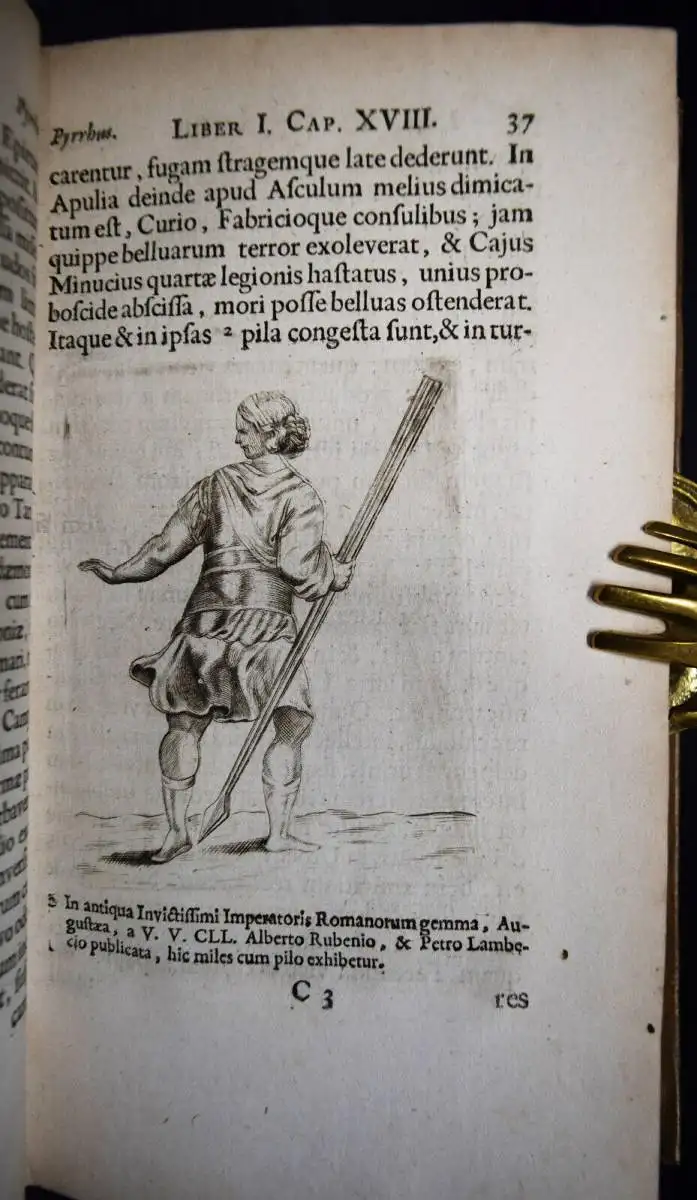 Pyrrhus. LIBER I. CAP. XVIII. 37
carentur, fugam ſtragemque late dederunt. In
Apulia deinde apud Aſculum melius dimica-
tum eſt, Curio, Fabricioque conſulibus; jam
quippe belluarum terror exoleverat, & Cajus
Minucius quartæ legionis haſtatus, unius pro-
boſcide abſciſſa, mori poſſe belluas oſtenderat.
Itaque & in ipſas ² pila congeſta ſunt, & in tur-
In antiqua Invictiſſimi Imperatoris Romanorum gemma, Au-
guſtæa, a V. V. CLL. Alberto Rubenio, & Petro Lambe-
cio publicata, hic miles cum pilo exhibetur.
C 3 res